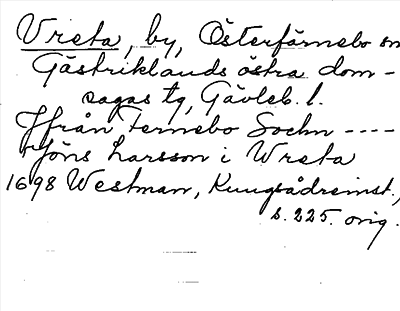 Vreta, by, Österfärnebo sn
Gästriklands östra dom-
sagas tg, Gävleb. l.
Ifrån Fernebo Sochn ----
Jöns Larsson i Wreta
1698 Westman, Kungsådreinst.,
s. 225. orig.